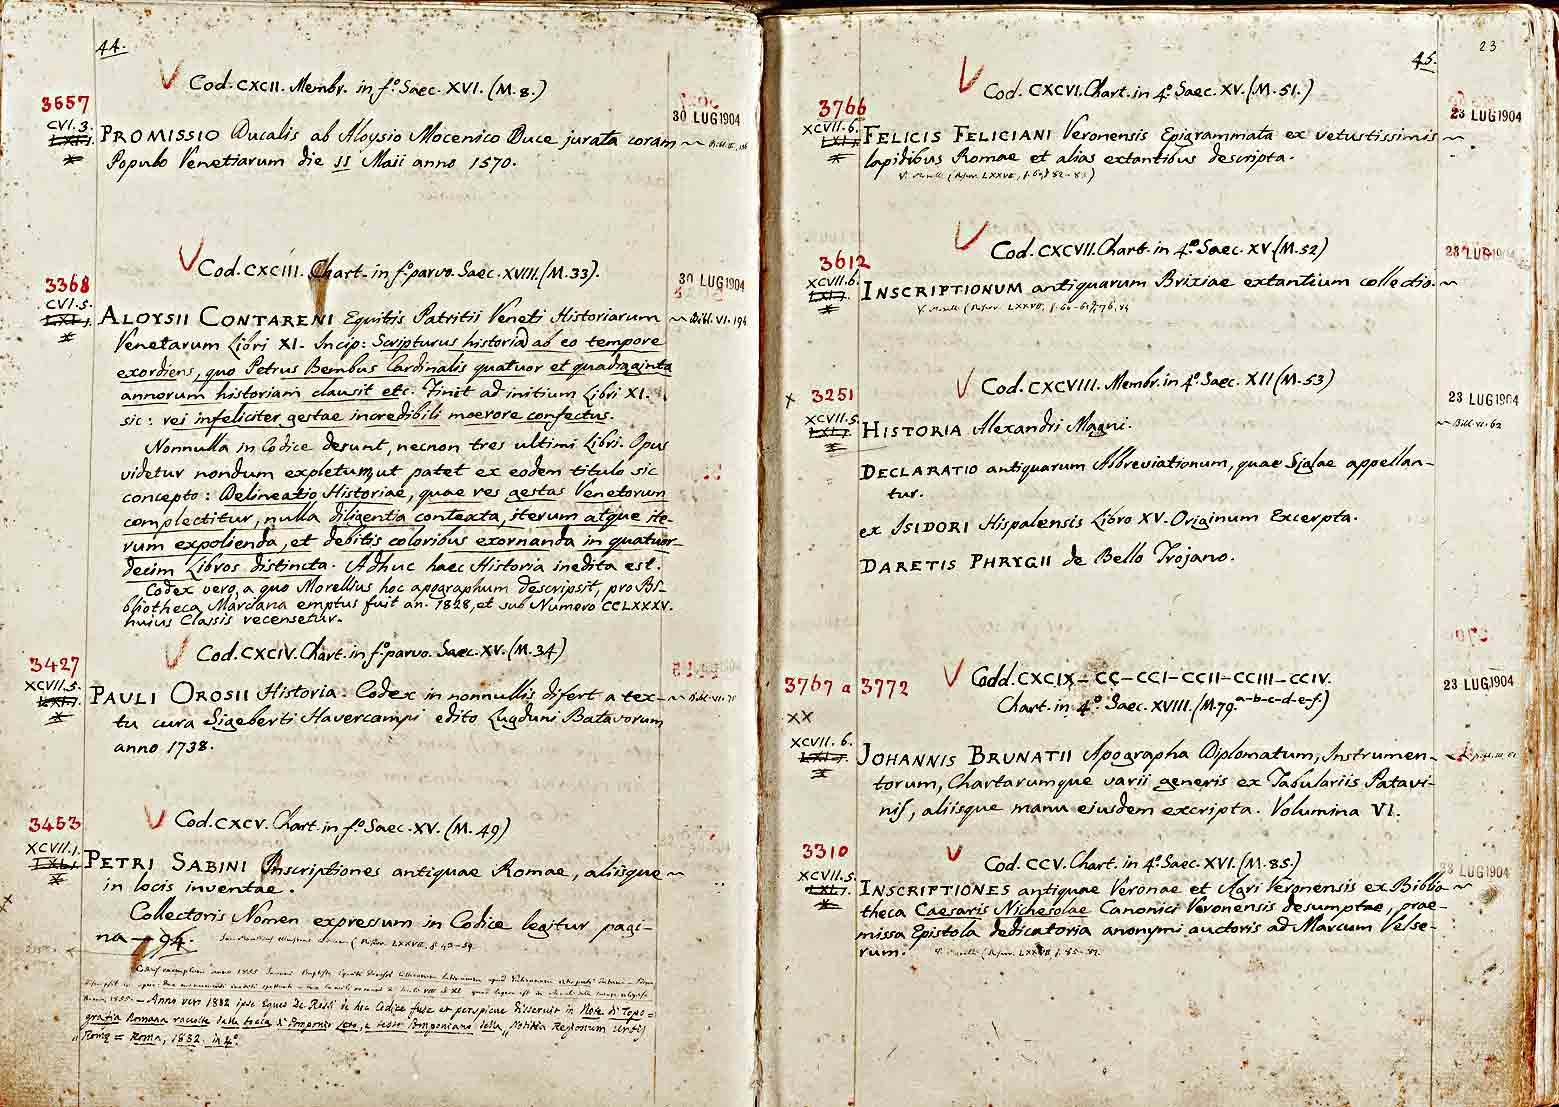 44.
Cod. CXCII. Membr. in fº. Saec. XVI. (M. 8.)
3657
30 LUG 1904
CVI. 3.
PROMISSIO Ducalis ab Aloysio Mocenico Duce jurata coram
Populo Venetiarum die 11 Maii anno 1570.
Cod. CXCIII. Chart. in fº. parvo. Saec. XVIII. (M. 33).
3368
30 LUG 1904
CVI. 5.
ALOYSII CONTARENI Equitis Patritii Veneti Historiarum
Bibl. VI. 194
Venetarum Libri XI. Incip: Scripturus historia ab eo tempore
exordiens, quo Petrus Bembus Cardinalis quatuor et quadraginta
annorum historiam clausit etc. Finit ad initium Libri XI.
sic: rei infeliciter gestae incredibili moerore confectus.
Nonnulla in Codice desunt, necnon tres ultimi Libri. Opus
videtur nondum expletum, ut patet ex eodem titulo sic
concepto: Delineatio Historiae, quae res gestas Venetorum
complectitur, nulla diligentia contexta, iterum atque ite-
rum expolienda, et debitis coloribus exornanda in quatuor-
decim Libros distincta. Adhuc haec Historia inedita est.
Codex vero, a quo Morellius hoc apographum descripsit, pro Bi-
bliotheca Marciana emptus fuit an. 1828, et sub Numero CCLXXXV.
huius Classis recensetur.
Cod. CXCIV. Chart. in fº. parvo. Saec. XV. (M. 34)
3427
XCVII. 5.
PAULI OROSII Historia. Codex in nonnullis differt a tex-
tu cura Sigeberti Havercampi edito Lugduni Batavorum
anno 1738.
Cod. CXCV. Chart. in fº. Saec. XV. (M. 49)
3453
XCVII. 1.
PETRI SABINI Inscriptiones antiquae Romae, aliisque
in locis inventae.
Collectoris Nomen expressum in Codice legitur pagi-
na 94.
Anno vero 1882 ipse Eques De Rossi de hoc Codice fuse et perspicue disseruit in Note di Topo=
grafia Romana raccolte dalla bocca di Pomponio Leto, e testo Pomponiano della „Notitia Regionum Urbis
Romae = Roma, 1882. in 4º.
23
45.
Cod. CXCVI. Chart. in 4º. Saec. XV. (M. 51.)
3766
23 LUG 1904
XCVII. 6.
FELICIS FELICIANI Veronensis Epigrammata ex vetustissimis
lapidibus Romae et alias extantibus descripta.
Cod. CXCVII. Chart. in 4º. Saec. XV. (M. 52)
3612
23 LUG
XCVII. 6.
INSCRIPTIONUM antiquarum Brixiae extantium collectio.
Cod. CXCVIII. Membr. in 4º. Saec. XII (M. 53)
3251
23 LUG 1904
XCVII. 5.
HISTORIA Alexandri Magni.
Bibl. VI. 62
DECLARATIO antiquarum Abbreviationum, quae Siglae appellan-
tur.
ex ISIDORI Hispalensis Libro XV. Originum Excerpta.
DARETIS PHRYGII de Bello Trojano.
Codd. CXCIX – CC – CCI – CCII – CCIII – CCIV.
3767 a 3772
23 LUG 1904
Chart. in 4º. Saec. XVIII. (M. 79. a-b-c-d-e-f.)
XX
XCVII. 6.
JOHANNIS BRUNATII Apographa Diplomatum, Instrumen-
torum, Chartarumque varii generis ex Tabulariis Patavi-
nis, aliisque manu ejusdem excripta. Volumina VI.
Cod. CCV. Chart. in 4º. Saec. XVI. (M. 85.)
3310
LUG 1904
XCVII. 5.
INSCRIPTIONES antiquae Veronae et Agri Veronensis ex Biblio-
theca Caesaris Nichesolae Canonici Veronensis desumptae, prae-
missa Epistola dedicatoria anonymi auctoris ad Marcum Velse-
rum.